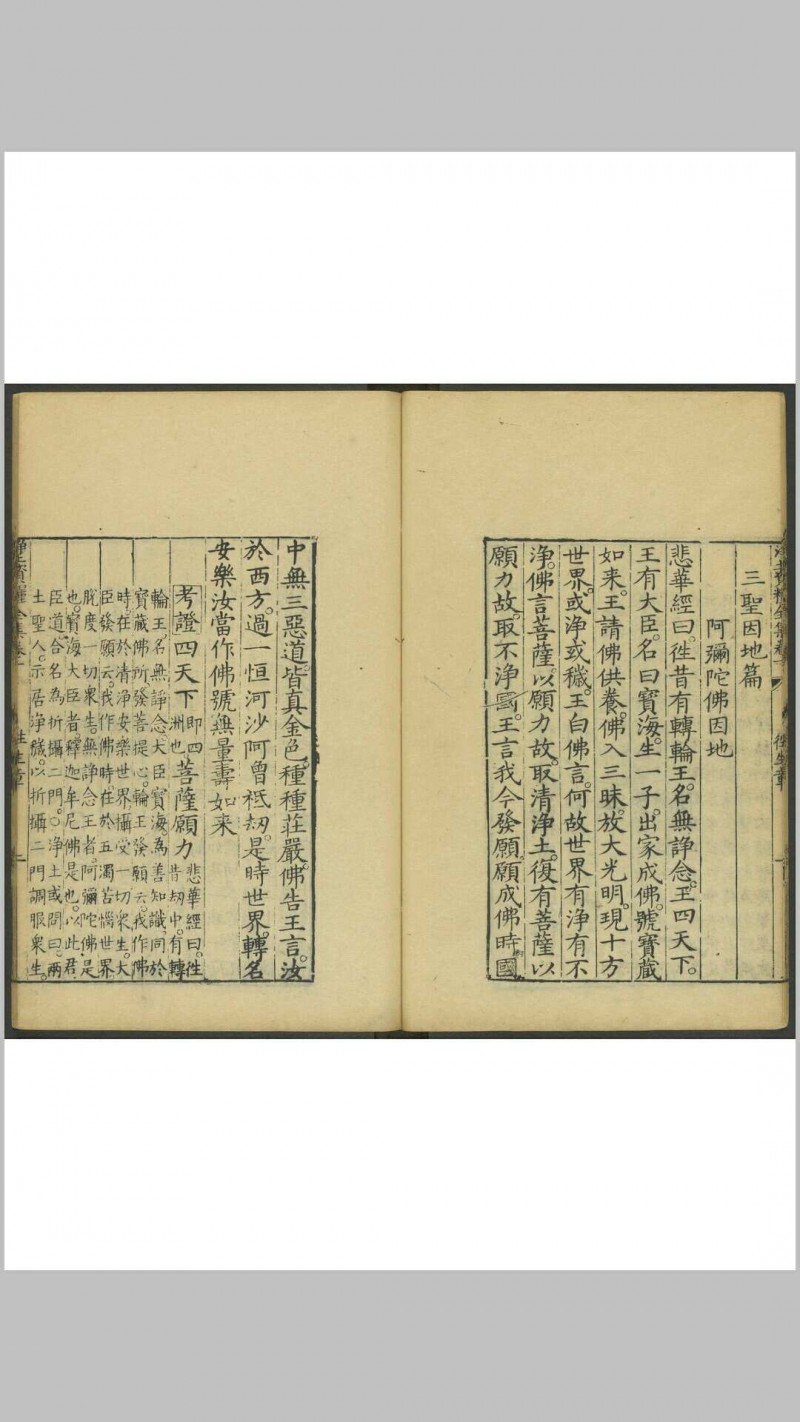 三聖因地篇
阿彌陀佛因地
悲華經曰。徃昔有轉輪王。名無諍念。王四天下。
王有大臣。名曰寳海。生一子。出家成佛。號寳藏
如来。王請佛供養。佛入三昧。放大光明。現十方
世界。或浄或穢。王白佛言。何故世界有浄有不
浄。佛言菩薩以願力故。取清浄土。復有菩薩以
願力故。取不浄國。王言我今發願。願成佛時。國
中無三惡道。皆真金色。種種莊嚴。佛告王言。汝
於西方。過一恒河沙阿曾祗劫。是時世界。轉名
安樂汝當作佛號無量壽如来
考證四天下即四洲也菩薩願力悲華經曰。徃昔劫中。有轉
輪王。名無諍念。大臣寳海。為善知識。同於
寳藏佛所。發菩提心。輪王發願云。我作佛
時。在於清浄安樂世界。攝受一切衆生。大
臣發願云。我作佛時在於五濁苦惱世界。
脫度一切衆生。無諍念王者。阿彌陀佛是
也。寳海大臣者釋迦牟尼佛是也。以此君
臣道合。名為折攝二門。○浄土或問曰。兩
土聖人。示居浄穢。以折攝二門調服衆生。
徃生章
徃生章